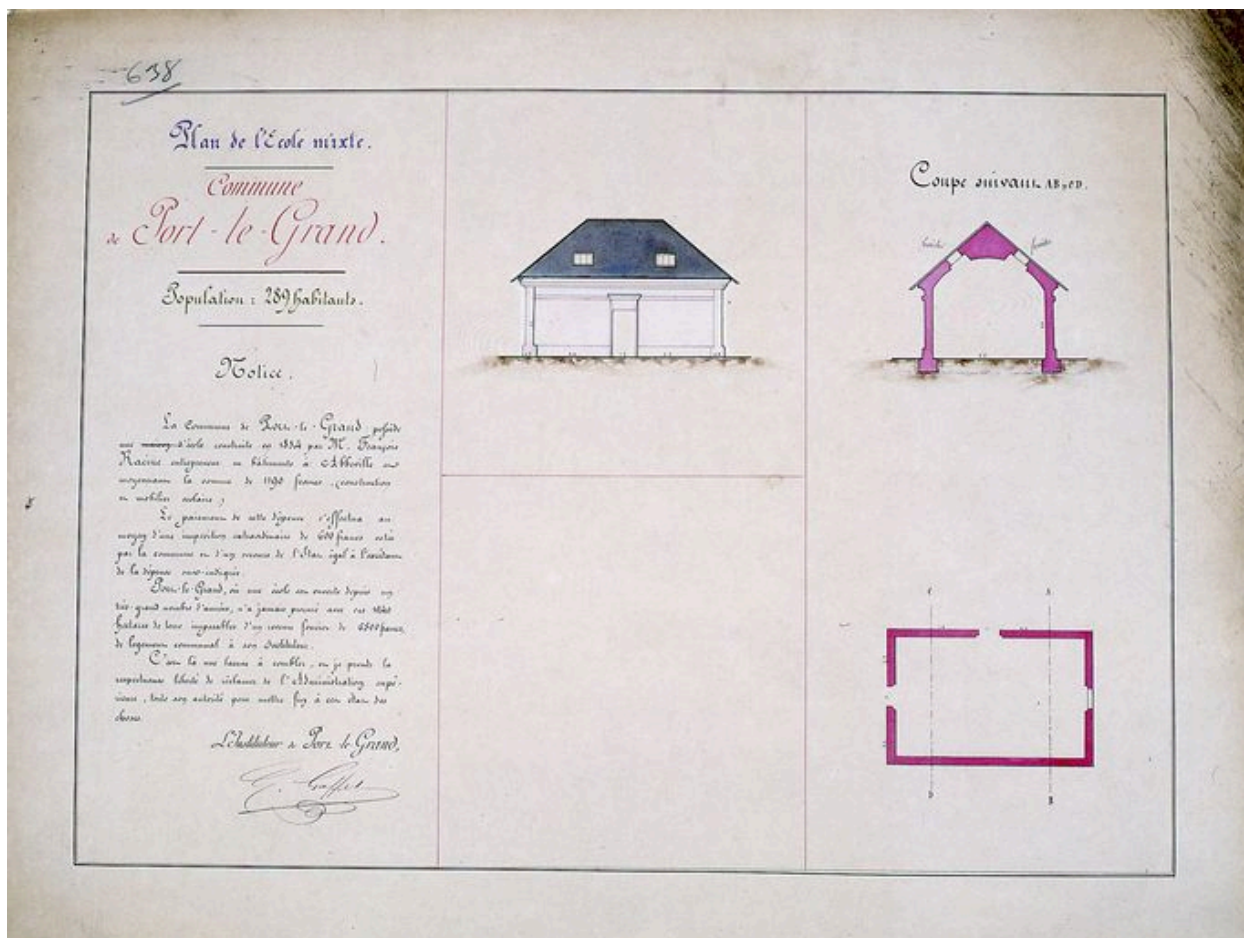 638
Plan de l'Ecole mixte.
Commune
de Port-le-Grand.
Population : 289 habitants.
Notice.
La Commune de Port-le-Grand possède
une maison d'école construite en 1834 par M. François
Racine entrepreneur en bâtiments à Abbeville
moyennant la somme de 1190 francs (construction
et mobilier scolaire)
Le paiement de cette dépense s'effectua au
moyen d'une imposition extraordinaire de 600 francs votée
par la commune et d'un secours de l'Etat égal à l'excédant
de la dépense sus-indiquée.
Port-le-Grand, où une école est ouverte depuis un
très grand nombre d'années, n'a jamais pensé avec ses
hectares de terre imposables d'un revenu foncier de francs,
de logement communal à son Instituteur.
C'est là une lacune à combler, et je prends la
respectueuse liberté de réclamer de l'Administration supé-
rieure, toute son autorité pour mettre fin à cet état des
choses.
L'Instituteur de Port le Grand,
Coupe suivant AB, CD.
C A
D B